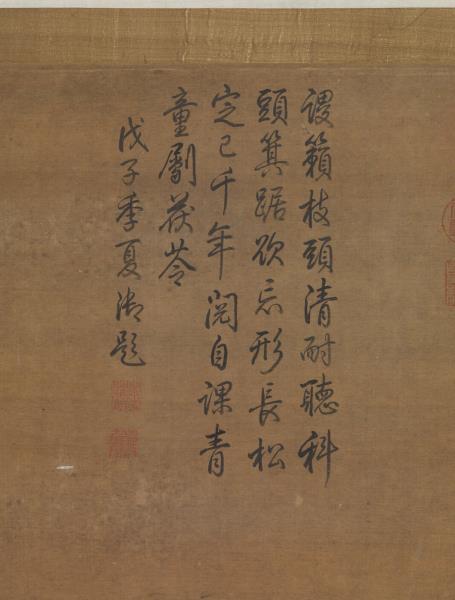 謖籟枝頭清耐聽科
頭箕踞欲忘形長松
定已千年閱自課青
童劚茯苓
戊子季夏御題